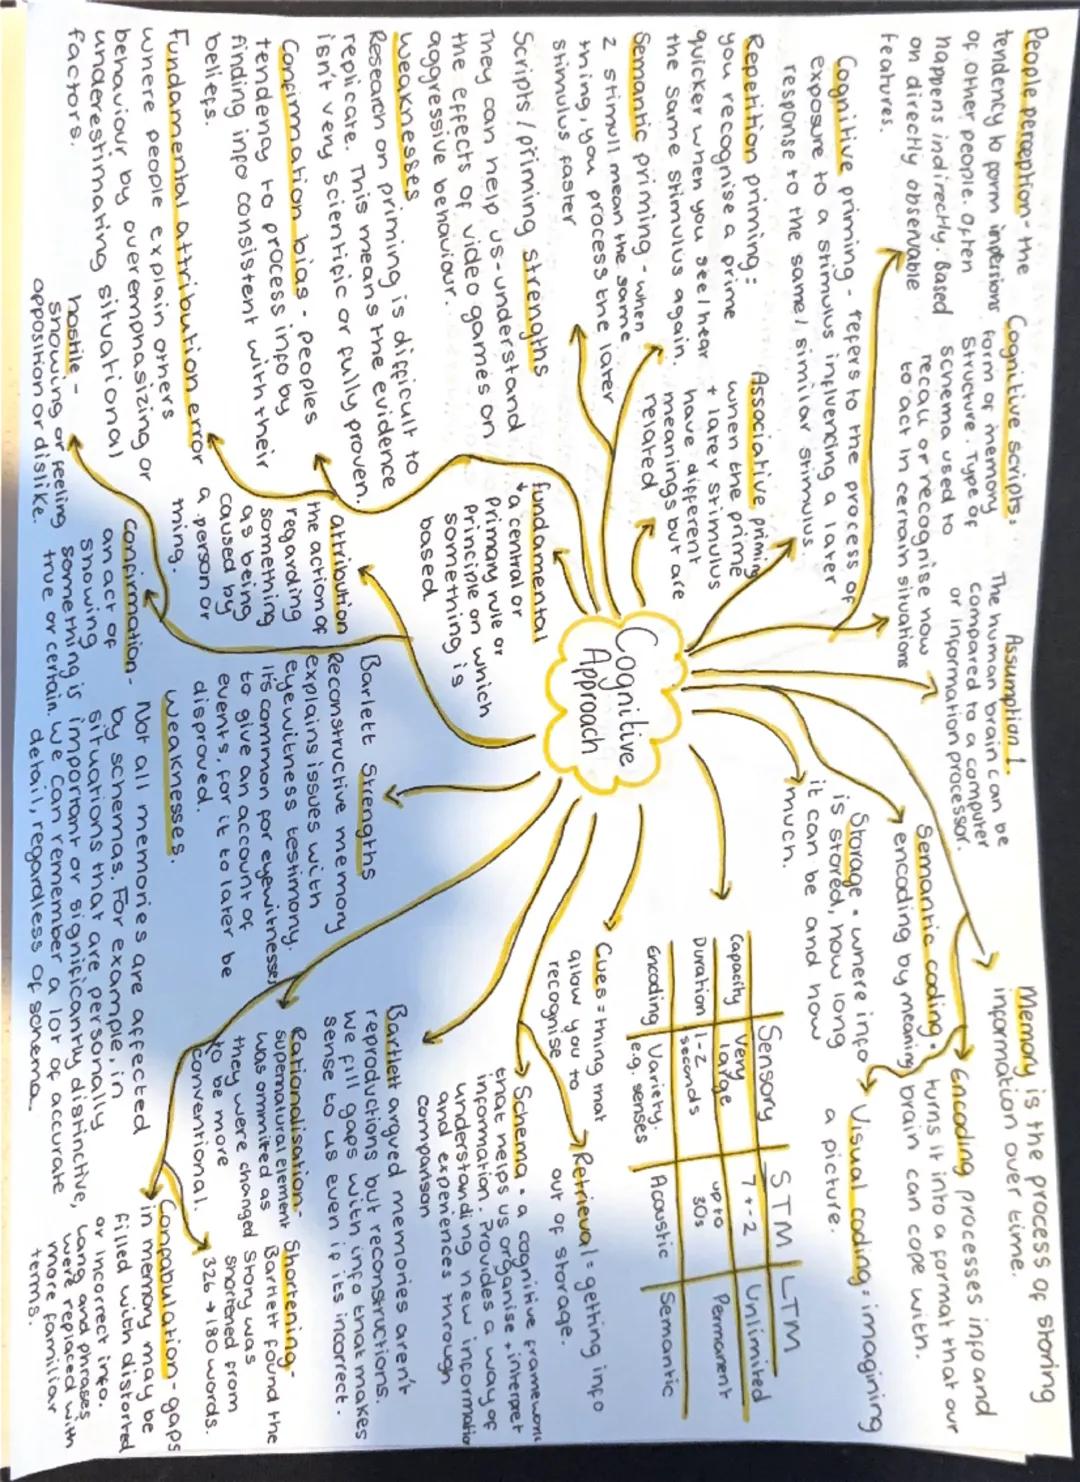 People perception - the
tendency to form impersions
of other people. Often
happens indirectly. Based
on directly observable
features.
Cognitive scripts:
form of memory
Structure. Type of
schema used to
recall or recognise now
to act in certain situations
Assumption 1.
The human brain can be
compared to a computer
or information processor.
Memory is the process of storing
information over time.
Encoding processes info and
turns it into a format that our
brain can cope with.
Semantic coding =
encoding by meaning
Visual coding = imagining
a picture.
Storage = where info
is stored, how long
it can be and how
much.
Cognitive priming - refers to the process of
exposure to a stimulus influencing a later
response to the same / similar stimulus.
Repetition priming:
you recognise a prime
quicker when you see/hear
the same stimulus again.
Associative priming
when the prime
+ later stimulus
have different
meanings but are
related
Semantic priming - when
2 stimuli mean the same
thing, you process the later
stimulus faster
Cognitive
Approach
Sensory STM LTM
Capacity very large 7 +- 2 Unlimited
Duration 1-2 seconds up to 30s Permanent
Encoding Variety. e.g. senses Acoustic Semantic
Cues = thing that
allow you to
recognise
Retrieval = getting info
out of storage.
Schema = a cognitive framework
that helps us organise + interpret
information. Provides a way of
understanding new informatio
and experiences through
comparison
Scripts / priming strengths
They can help us understand
the effects of video games on
aggressive behaviour.
Weaknesses
Research on priming is difficult to
replicate. This means the evidence
isn't very scientific or fully proven.
fundamental
a central or
primary rule or
principle on which
something is
based
Confirmation bias - peoples
tendency to process info by
finding info consistent with their
beliefs.
attribution
the action of
regarding
something
as being
caused by
a person or
thing.
Barlett Strengths
Reconstructive memory
explains issues with
eyewitness testimony.
It's common for eyewitnesses
to give an account of
events, for it to later be
disproved.
Weaknesses.
Not all memories are affected
by schemas. For example, in
situations that are personally
important or significantly distinctive,
we can remember a lot of accurate
detail, regardless of schema.
Bartlett argued memories aren't
reproductions but reconstructions.
We fill gaps with info that makes
sense to us even if its incorrect.
Rationalisation -
supernatural element
was ommitted as
they were changed
to be more
conventional.
Shortening -
Bartlett found the
Story was
shortened from
326 → 180 words.
Confabulation - gaps
in memory may be
filled with distorted
or incorrect info.
Lang and phrases
were replaced with
more familiar
terms.
Fundamental attribution error
where people explain others
behaviour by overemphasizing or
underestimating situational
factors.
Confirmation -
an act of
showing
something is
true or certain.
hostile -
showing or feeling
opposition or dislike.